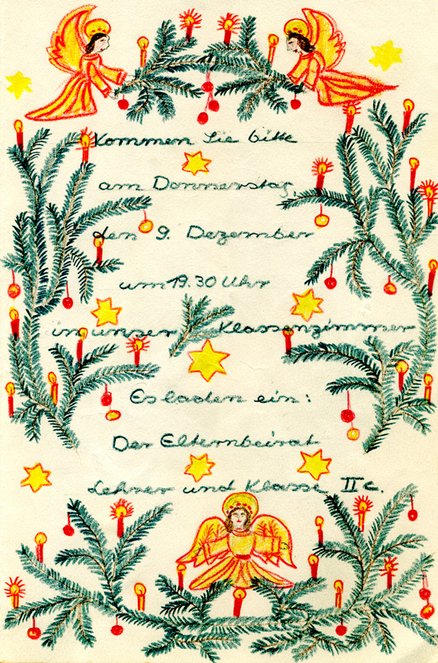 Kommen Sie bitte
am Donnerstag,
den 9. Dezember
um 19.30 Uhr
in unser Klassenzimmer
Es laden ein:
Der Elternbeirat
Lehrer und Klasse IIc.